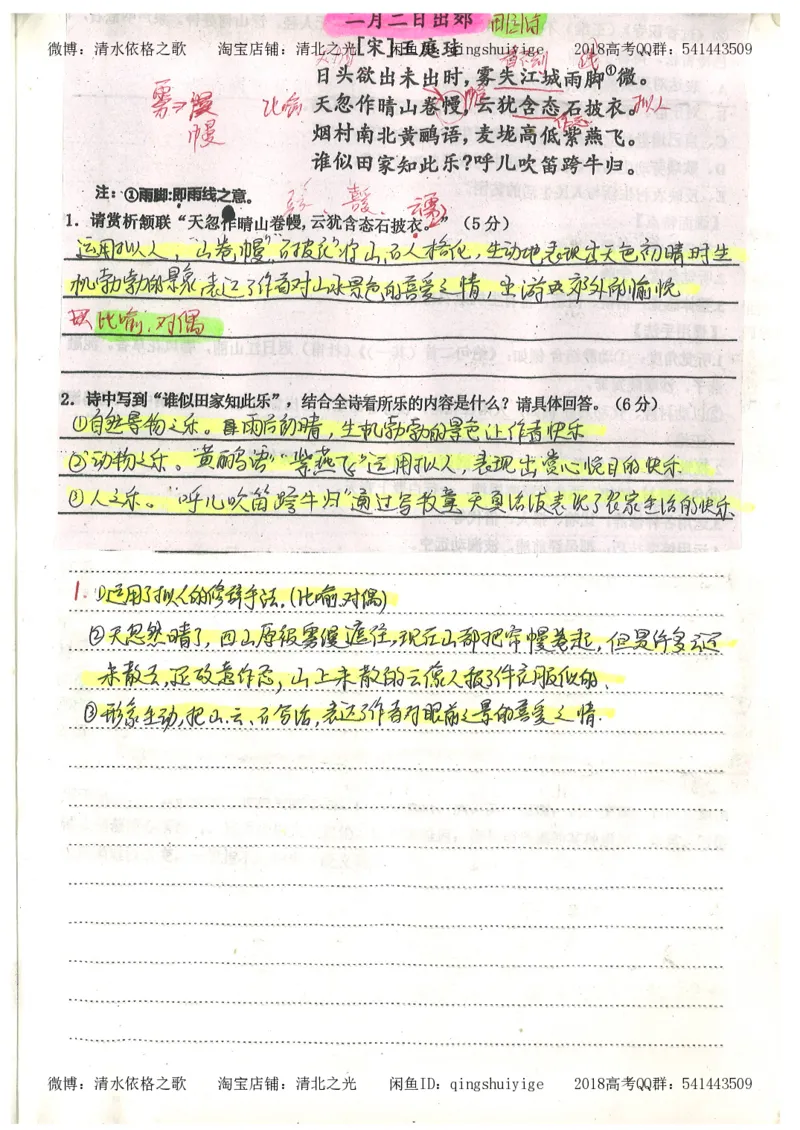 二月二日出郊 田园诗
微博：清水依格之歌 淘宝店铺：清北之光 闲鱼ID：qingshuiyige 2018高考QQ群：541443509
[宋]王庭珪
日头欲出未出时，雾失江城雨脚①微。
天忽作晴山卷幔，云犹含态石披衣。
雾→幔
比喻
拟人
烟村南北黄鹂语，麦垅高低紫燕飞。
谁似田家知此乐？呼儿吹笛跨牛归。
注：①雨脚:即雨线之意。
1．请赏析颔联“天忽作晴山卷幔,云犹含态石披衣。”（5分）
运用拟人，“山卷幔”“石披衣”将山、石人格化，生动地表现出天色初晴时生
机勃勃的景象，表达了作者对山水景色的喜爱之情，出游至郊外的愉悦
缺比喻，对偶
2．诗中写到“谁似田家知此乐”，结合全诗看所乐的内容是什么？请具体回答。（6分）
①自然景物之乐。雨后初晴，生机勃勃的景色让作者快乐
②动物之乐。“黄鹂语”“紫燕飞”运用拟人，表现出赏心悦目的快乐
③人之乐。“呼儿吹笛跨牛归”通过写牧童天真活泼表现了农家生活的快乐
1. ①运用了拟人的修辞手法，(比喻,对偶)
②天忽然晴了，四山原被雾幔遮住，现在山都把帘幔卷起，但是许多云还
未散去，还故意作态，山上未散的云像人披了件衣服似的．
③形象生动，把山、云、石写活，表达了作者对眼前之景的喜爱之情．
微博：清水依格之歌 淘宝店铺：清北之光 闲鱼ID：qingshuiyige 2018高考QQ群：541443509